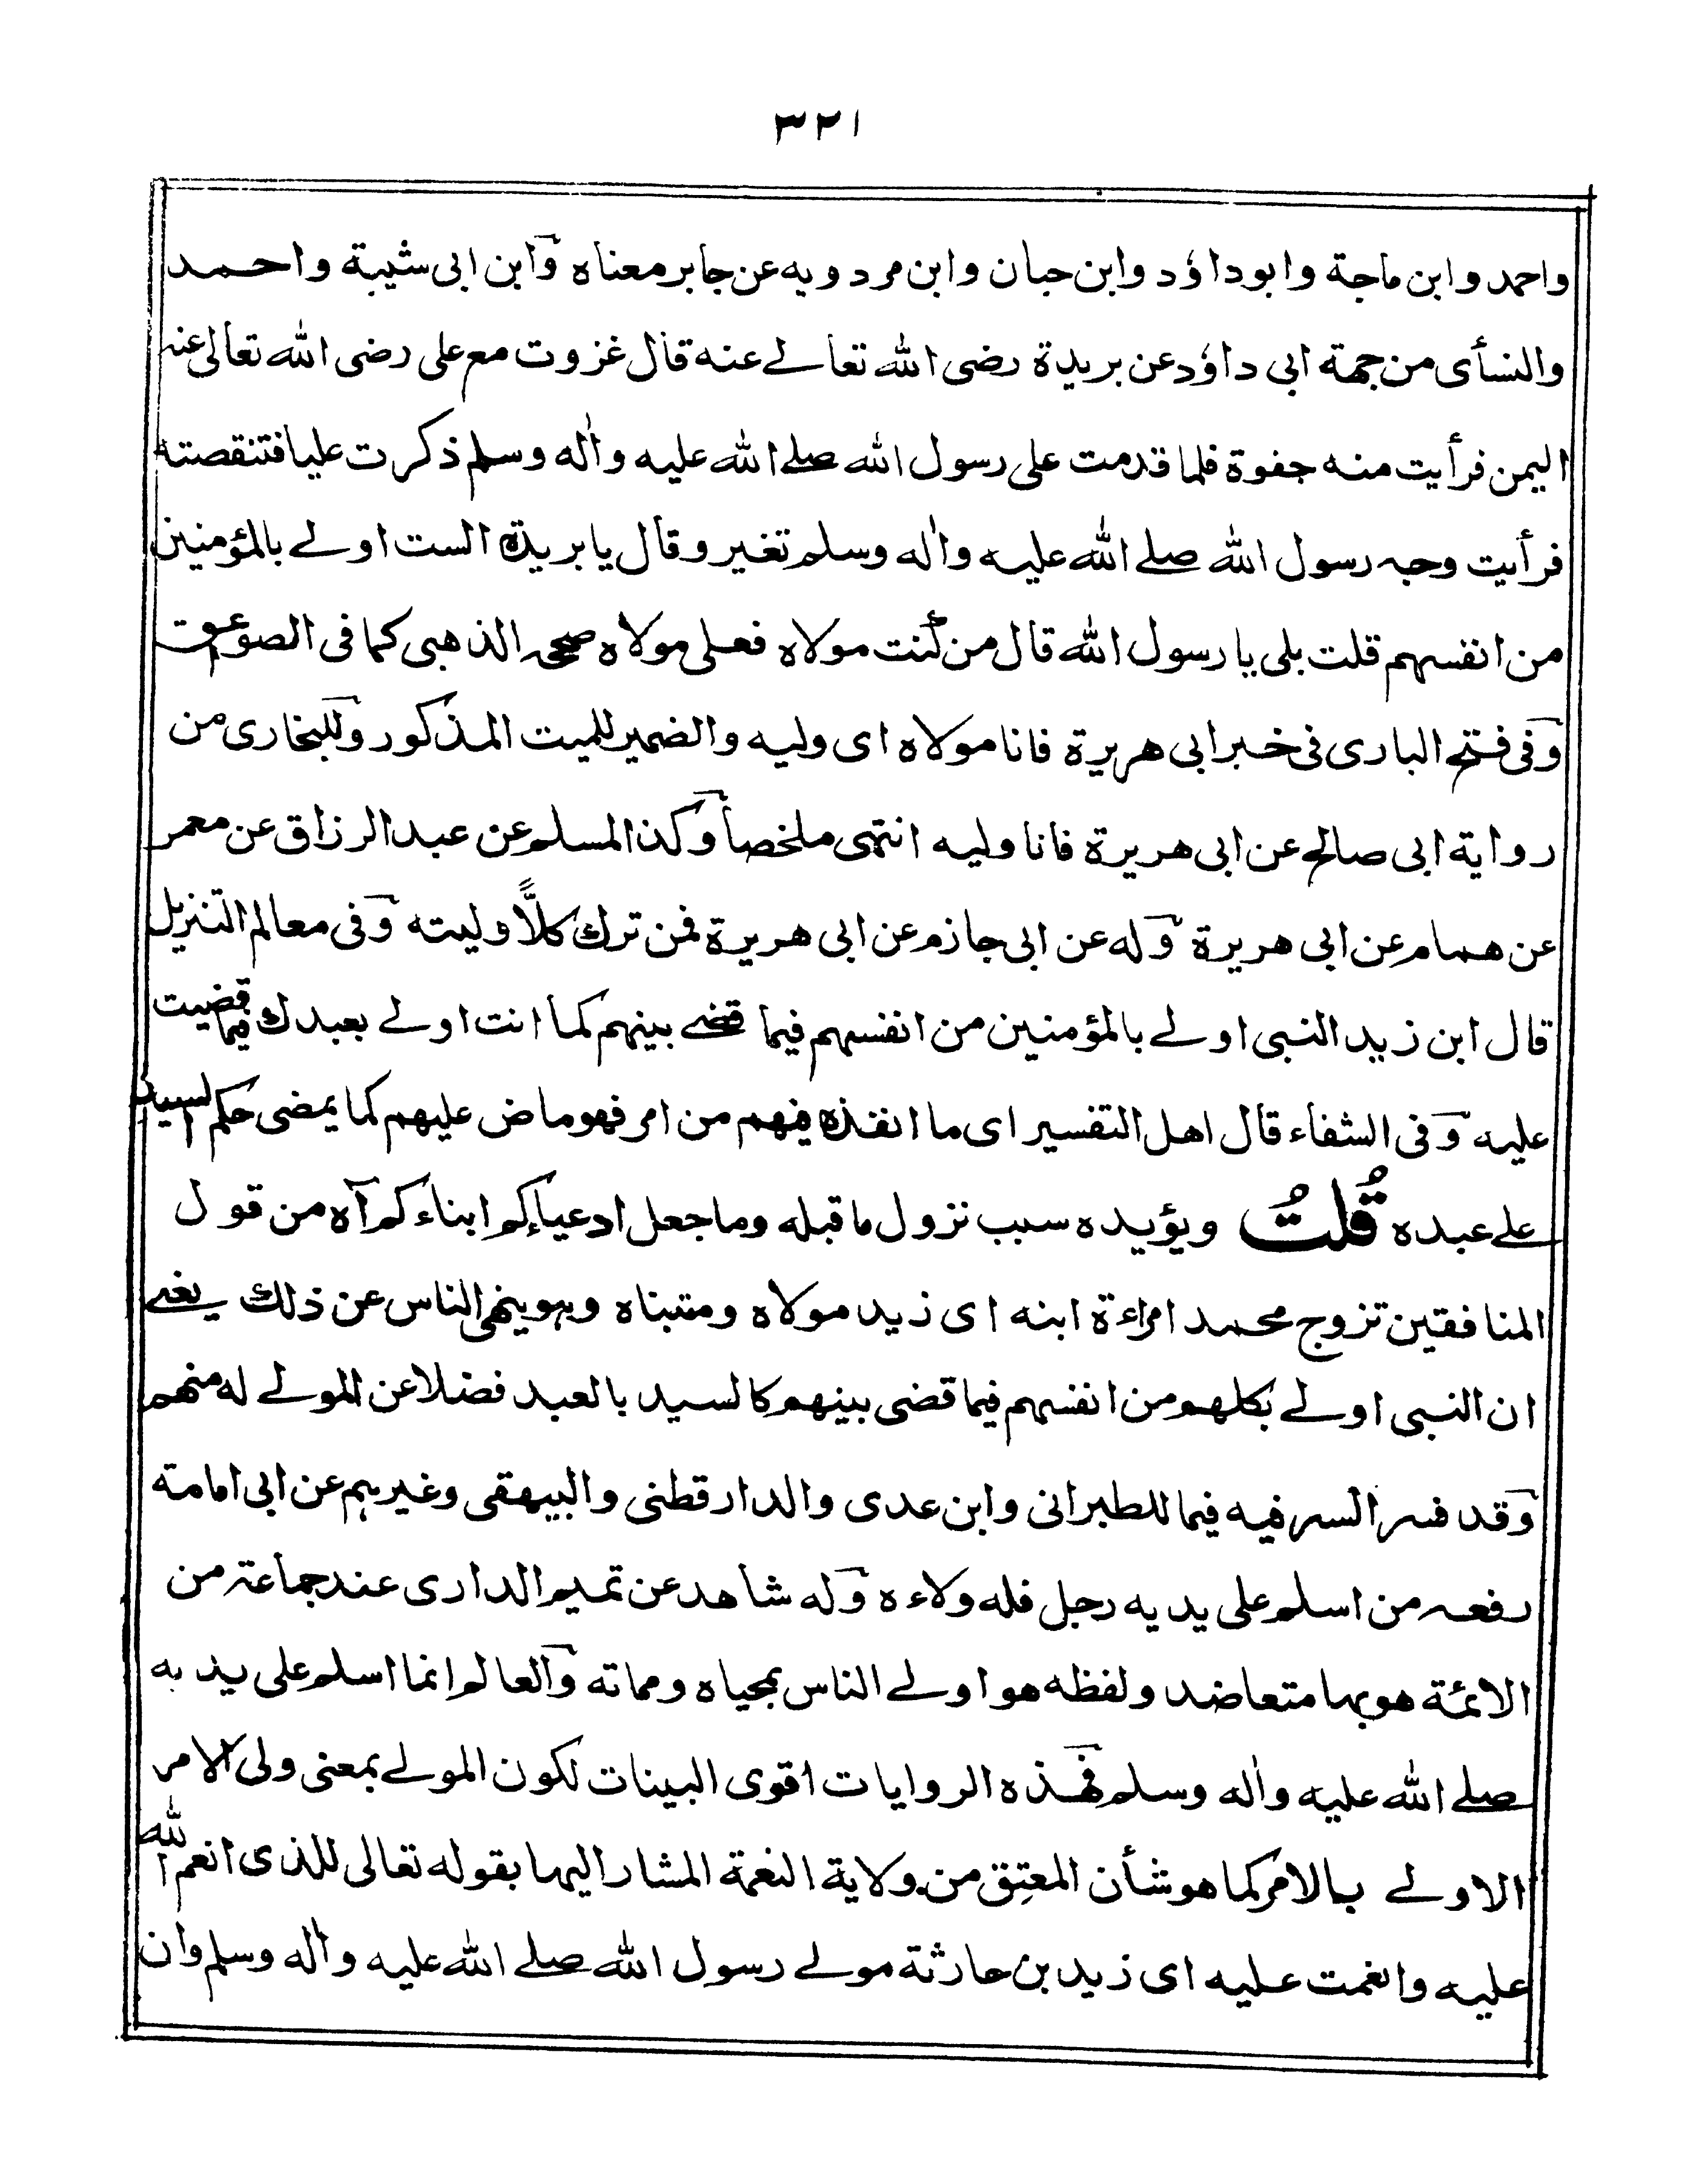 ٣٢١
واحمد وابن ماجة وابوداؤد وابن حبان وابن مردويه عن جابر معناه وابن ابى شيبة واحمد
والنسأى من جهة ابى داؤد عن بريدة رضى الله تعالے عنه قال غزوت مع على رضى الله تعالى عنه
اليمن فرأيت منه جفوة فلما قدمت على رسول الله صلے الله عليه واٰله وسلم ذكرت عليا فتنقصته
فرأيت وجه رسول الله صلے الله عليه واٰله وسلم تغير وقال يا بريدة الست اولے بالمؤمنين
من انفسهم قلت بلى يا رسول الله قال من كنت مولاه فعلى مولاه صححه الذهبى كما فى الصوعق
وفى فتح البارى فى خبر ابى هريرة فانا مولاه اى وليه والضمير للميت المذكور وللبخارى من
رواية ابى صالح عن ابى هريرة فانا وليه انتهى ملخصاً وكذا لمسلم عن عبد الرزاق عن معمر
عن همام عن ابى هريرة وله عن ابى حازم عن ابى هريرة فمن ترك كلاًّ وليته وفى معالم التنزيل
قال ابن زيد النبى اولے بالمؤمنين من انفسهم فيما قضے بينهم كما انت اولے بعبدك فيما قضيت
عليه وفى الشفاء قال اهل التفسير اى ما انفذه فيهم من امر فهو ماض عليهم كما يمضى حكم السيد
علے عبده قُلتُ ويؤيده سبب نزول ما قبله وما جعل ادعياءكم ابناءكم آه من قول
المنافقين تزوج محمد امراءة ابنه اى زيد مولاه ومتبناه وهو ينهى الناس عن ذلك يعنے
ان النبى اولے بكلهم من انفسهم فيما قضى بينهم كالسيد بالعبد فضلا عن المولے له منهم
وقد فسر السر فيه فيما للطبرانى وابن عدى والدارقطنى والبيهقى وغيرهم عن ابى امامة
رفعه من اسلم على يديه رجل فله ولاءه وله شاهد عن تميم الدارى عند جماعة من
الائمة هو بها متعاضد ولفظه هو اولے الناس بمحياه ومماته والعالم انما اسلم على يد به
صلے الله عليه واٰله وسلم فهذه الروايات اقوى البينات لكون المولے بمعنى ولى الامر
الاولے بالامر كما هو شأن المعتِق من ولاية النعمة المشار اليها بقوله تعالى للذى انعم الله
عليه وانعمت عليه اى زيد بن حارثة مولے رسول الله صلے الله عليه واٰله وسلم وان